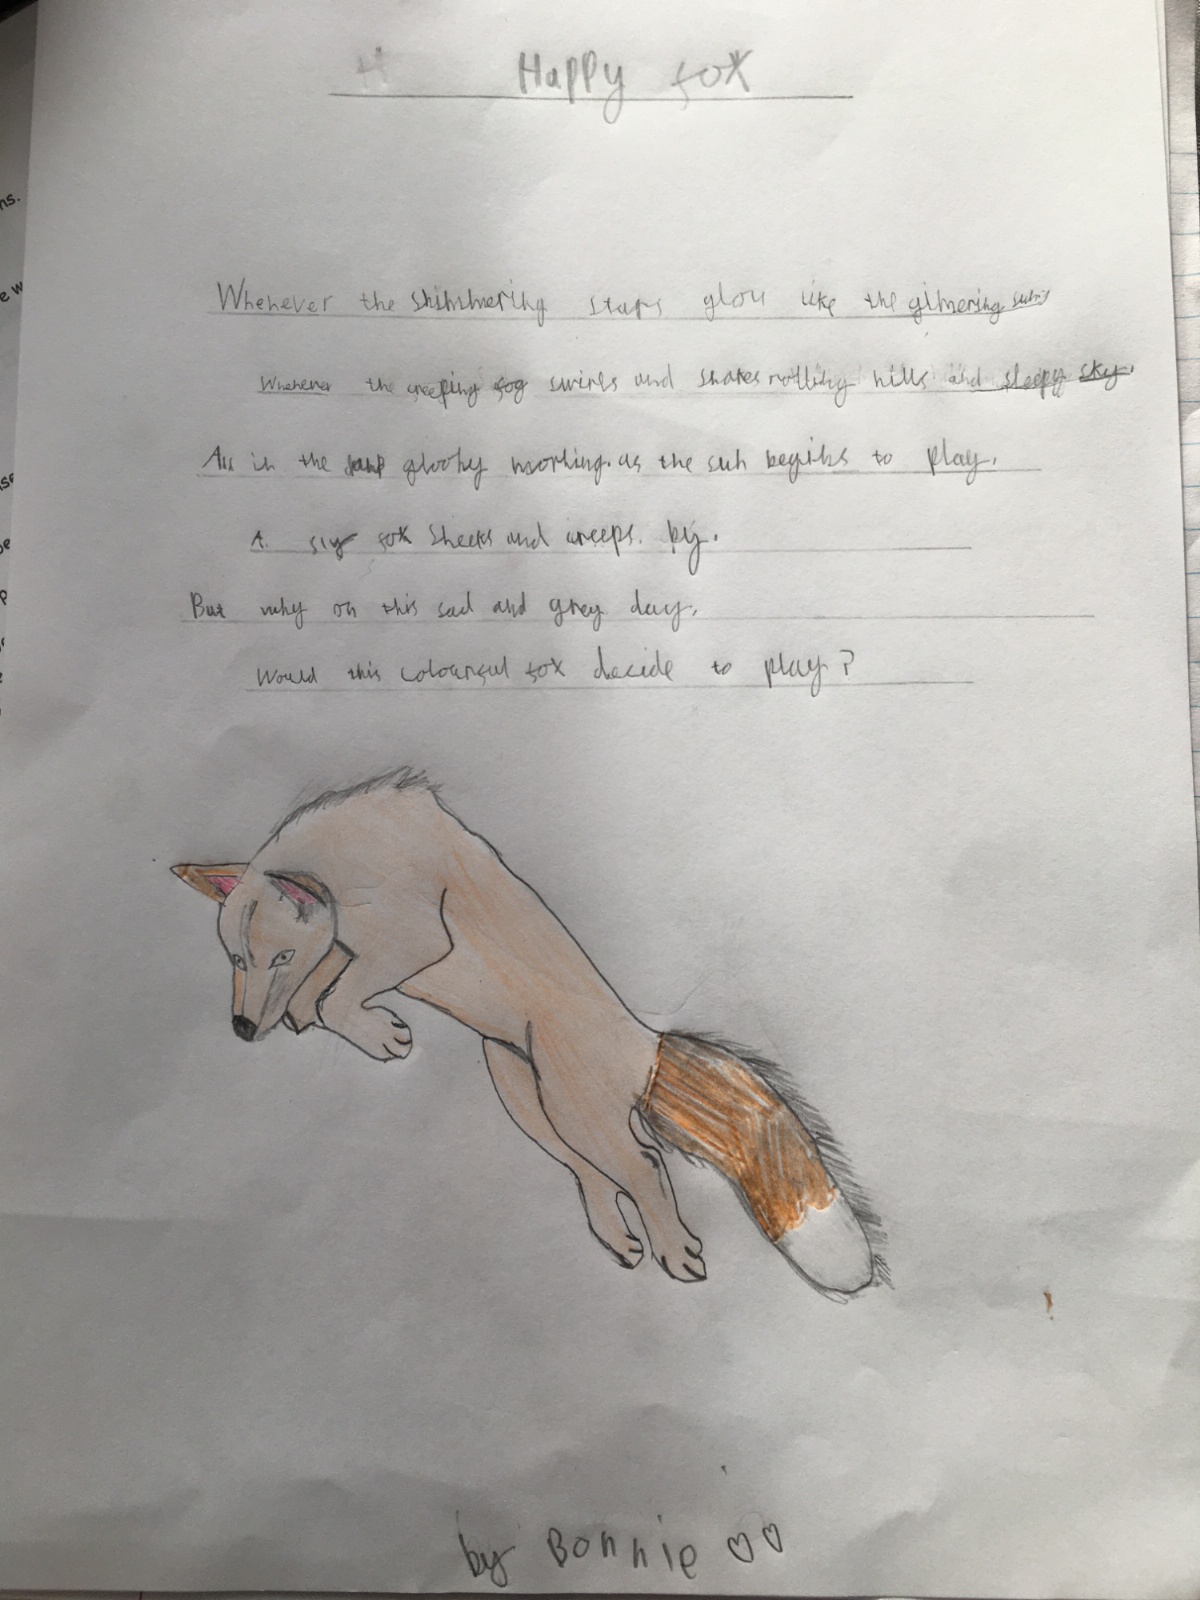 Happy fox
Whenever the shimmering stars glow like the glimering suns
Whenever the creeping fog swirls and snakes rolling hills and sleepy sky.
All in the gloomy morning. as the sun begins to play.
A. sly fox Sneeks and creeps. by.
But why on this sad and grey day.
Would this colourful fox decide to play?
by Bonnie ♡♡